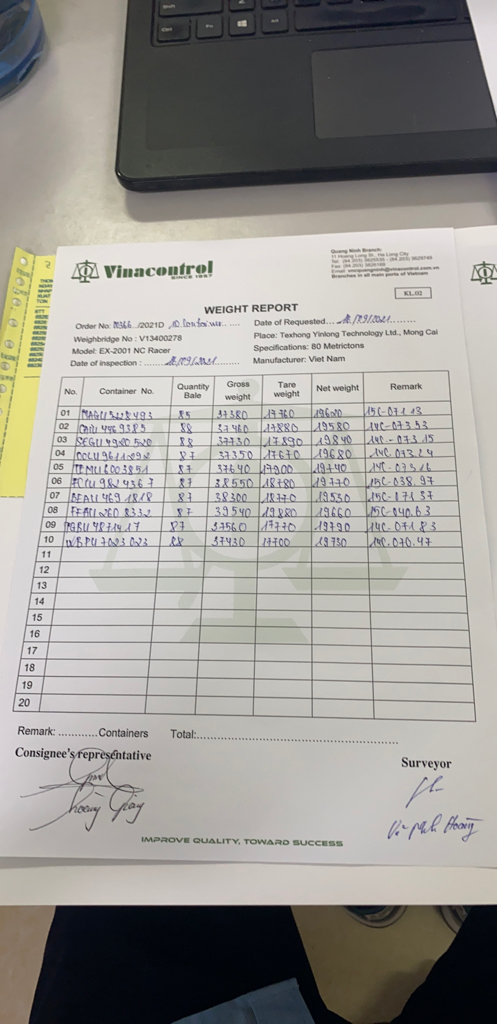 Vinacontrol
SINCE 1957
Quang Ninh Branch:
11 Hoang Long St., Ha Long City
Branches in all main ports of Vietnam
KL.02
WEIGHT REPORT
Order No: /2021D
Date of Requested
Weighbridge No : V13400278
Place: Texhong Yinlong Technology Ltd., Mong Cai
Model: EX-2001 NC Racer
Specifications: 80 Metrictons
Date of inspection :
Manufacturer: Viet Nam
No. Container No. Quantity Bale Gross weight Tare weight Net weight Remark
01 85 37380 17760 19620 15C-071.13
02 CAIU 4469385 88 37460 17880 19580 14C-073.53
03 SEGU 4980 520 88 37730 17890 19840 14C-073.15
04 87 37350 17670 19680 14C 073.24
05 TEMU 6003851 87 37640 17900 19740 14C-073.16
06 FCIU 982 4367 87 38550 18780 19770 15C-038.97
07 469 1818 87 38300 18770 19530 15C-071.37
08 260 8332 87 39540 19880 19660 15C-040.63
09 87 37560 17770 19790 14C-071.83
10 7023 023 88 37430 17700 19730 14C.070.47
11
12
13
14
15
16
17
18
19
20
Remark: ............Containers Total:
Consignee's representative
Surveyor
Hoàng
IMPROVE QUALITY, TOWARD SUCCESS